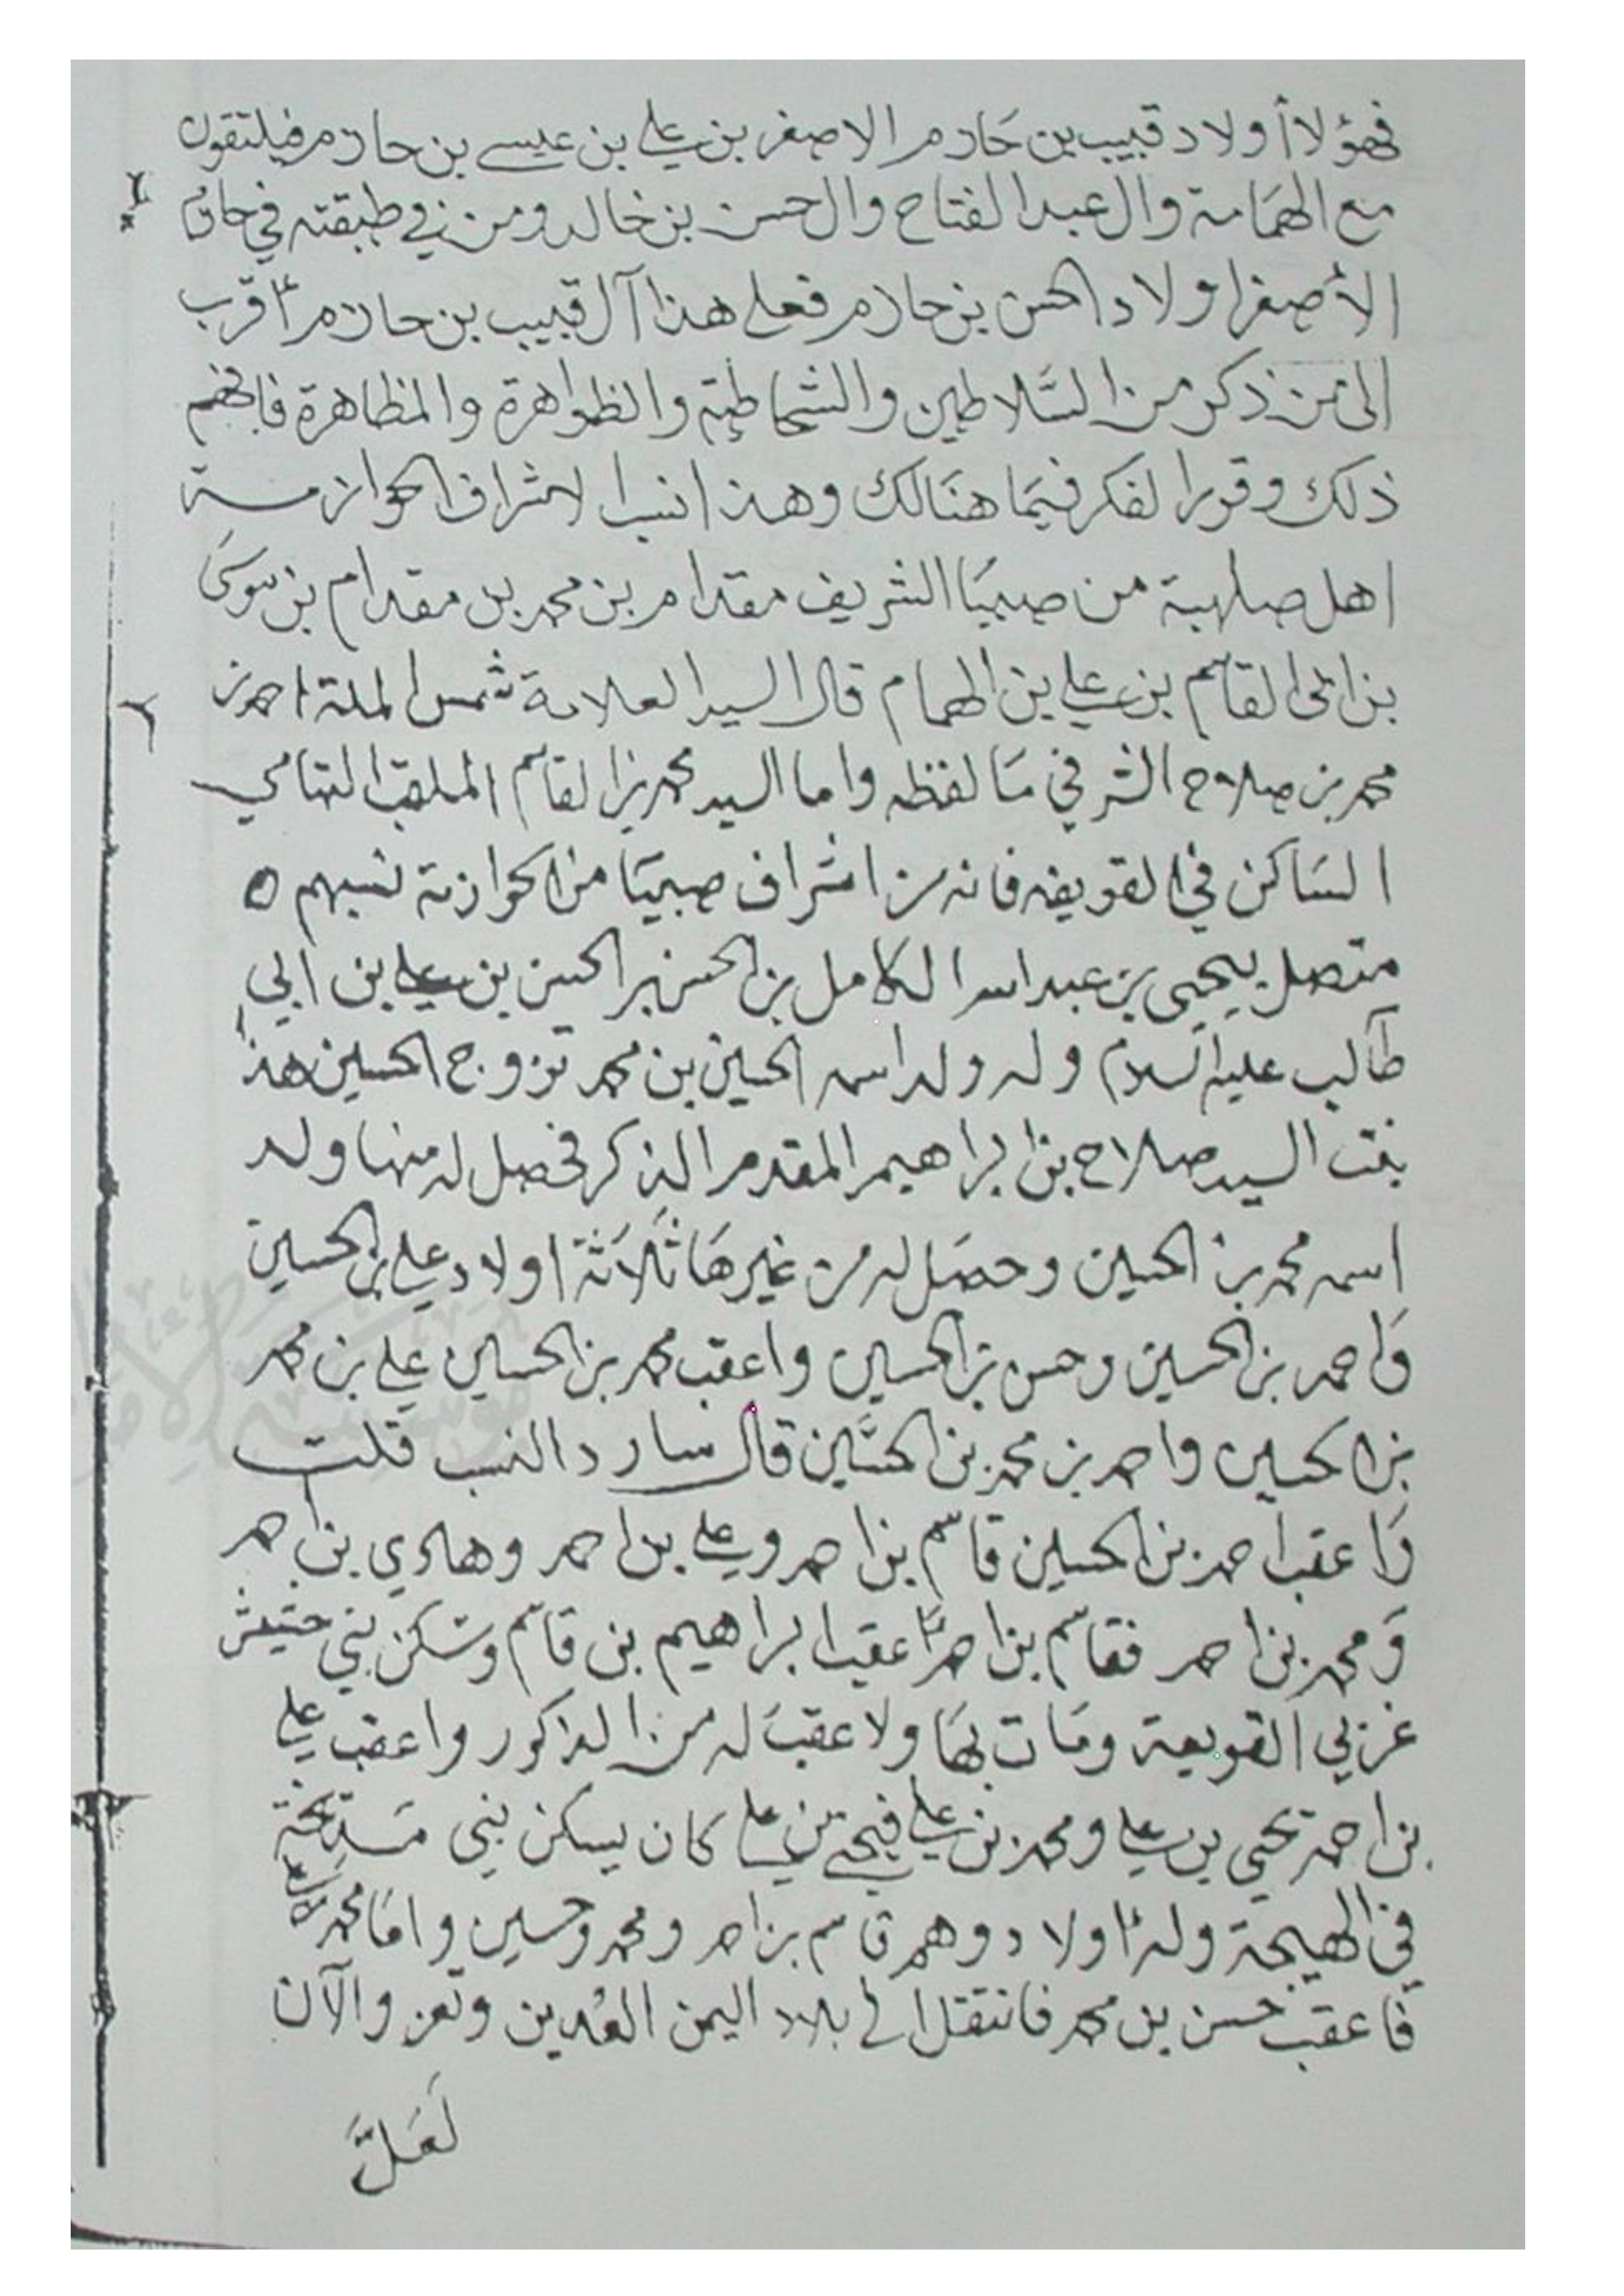 فهؤلاأ أولاد قبيب بن حازم الاصغر بن علي بن عيسى بن حازم فيلتقون
مع الهمامة وال عبد الفتاح وال حسن بن خالد ومن في طبقته في حازم
الأصغر اولاد الحسن بن حازم فعلى هذا آل قبيب بن حازم أقرب
الى من ذكر من السلاطين والشماطية والظواهرة والمظاهرة فافهم
ذلك وقور الفكر فيما هنالك وهذا نسب الاشراف الحوازمة
اهل صلهبة من صبيا الشريف مقدام بن محمد بن مقدام بن موسى
بن ابي القاسم بن علي بن الهمام قال السيد العلامة شمس الملة احمد بن
محمد بن صلاح الشرفي ما لفظه واما السيد محمد بن القاسم الملقب التهامي
الساكن في القويعه فانه من اشراف صبيا من الحوازمة نسبهم ه
متصل بيحيى بن عبد الله الكامل بن الحسن بن الحسن بن علي بن ابي
طالب عليه السلام وله ولد اسمه الحسين بن محمد تزوج الحسين هذا
بنت السيد صلاح بن ابراهيم المقدم الذكر فحصل له منها ولد
اسمه محمد بن الحسين وحصل له من غيرها ثلاثة اولاد علي بن الحسين
واحمد بن الحسين وحسن بن الحسين واعقب محمد بن الحسين علي بن محمد
بن الحسين واحمد بن محمد بن الحسين قال سارد النسب قلت
واعقب احمد بن الحسين قاسم بن احمد وعلي بن احمد وهادي بن احمد
ومحمد بن احمد فقاسم بن احمد أعقب ابراهيم بن قاسم وسكن بني حشيش
غربي القويعة ومات بها ولا عقب له من الذكور واعقب علي
بن احمد يحيى بن علي ومحمد بن علي فيحيى بن علي كان يسكن بني
في الهيجة وله أولاد وهم قاسم بن احمد ومحمد وحسين واما محمد بن علي
فاعقب حسن بن محمد فانتقل الى بلاد اليمن العدين وتعز والآن
لعل